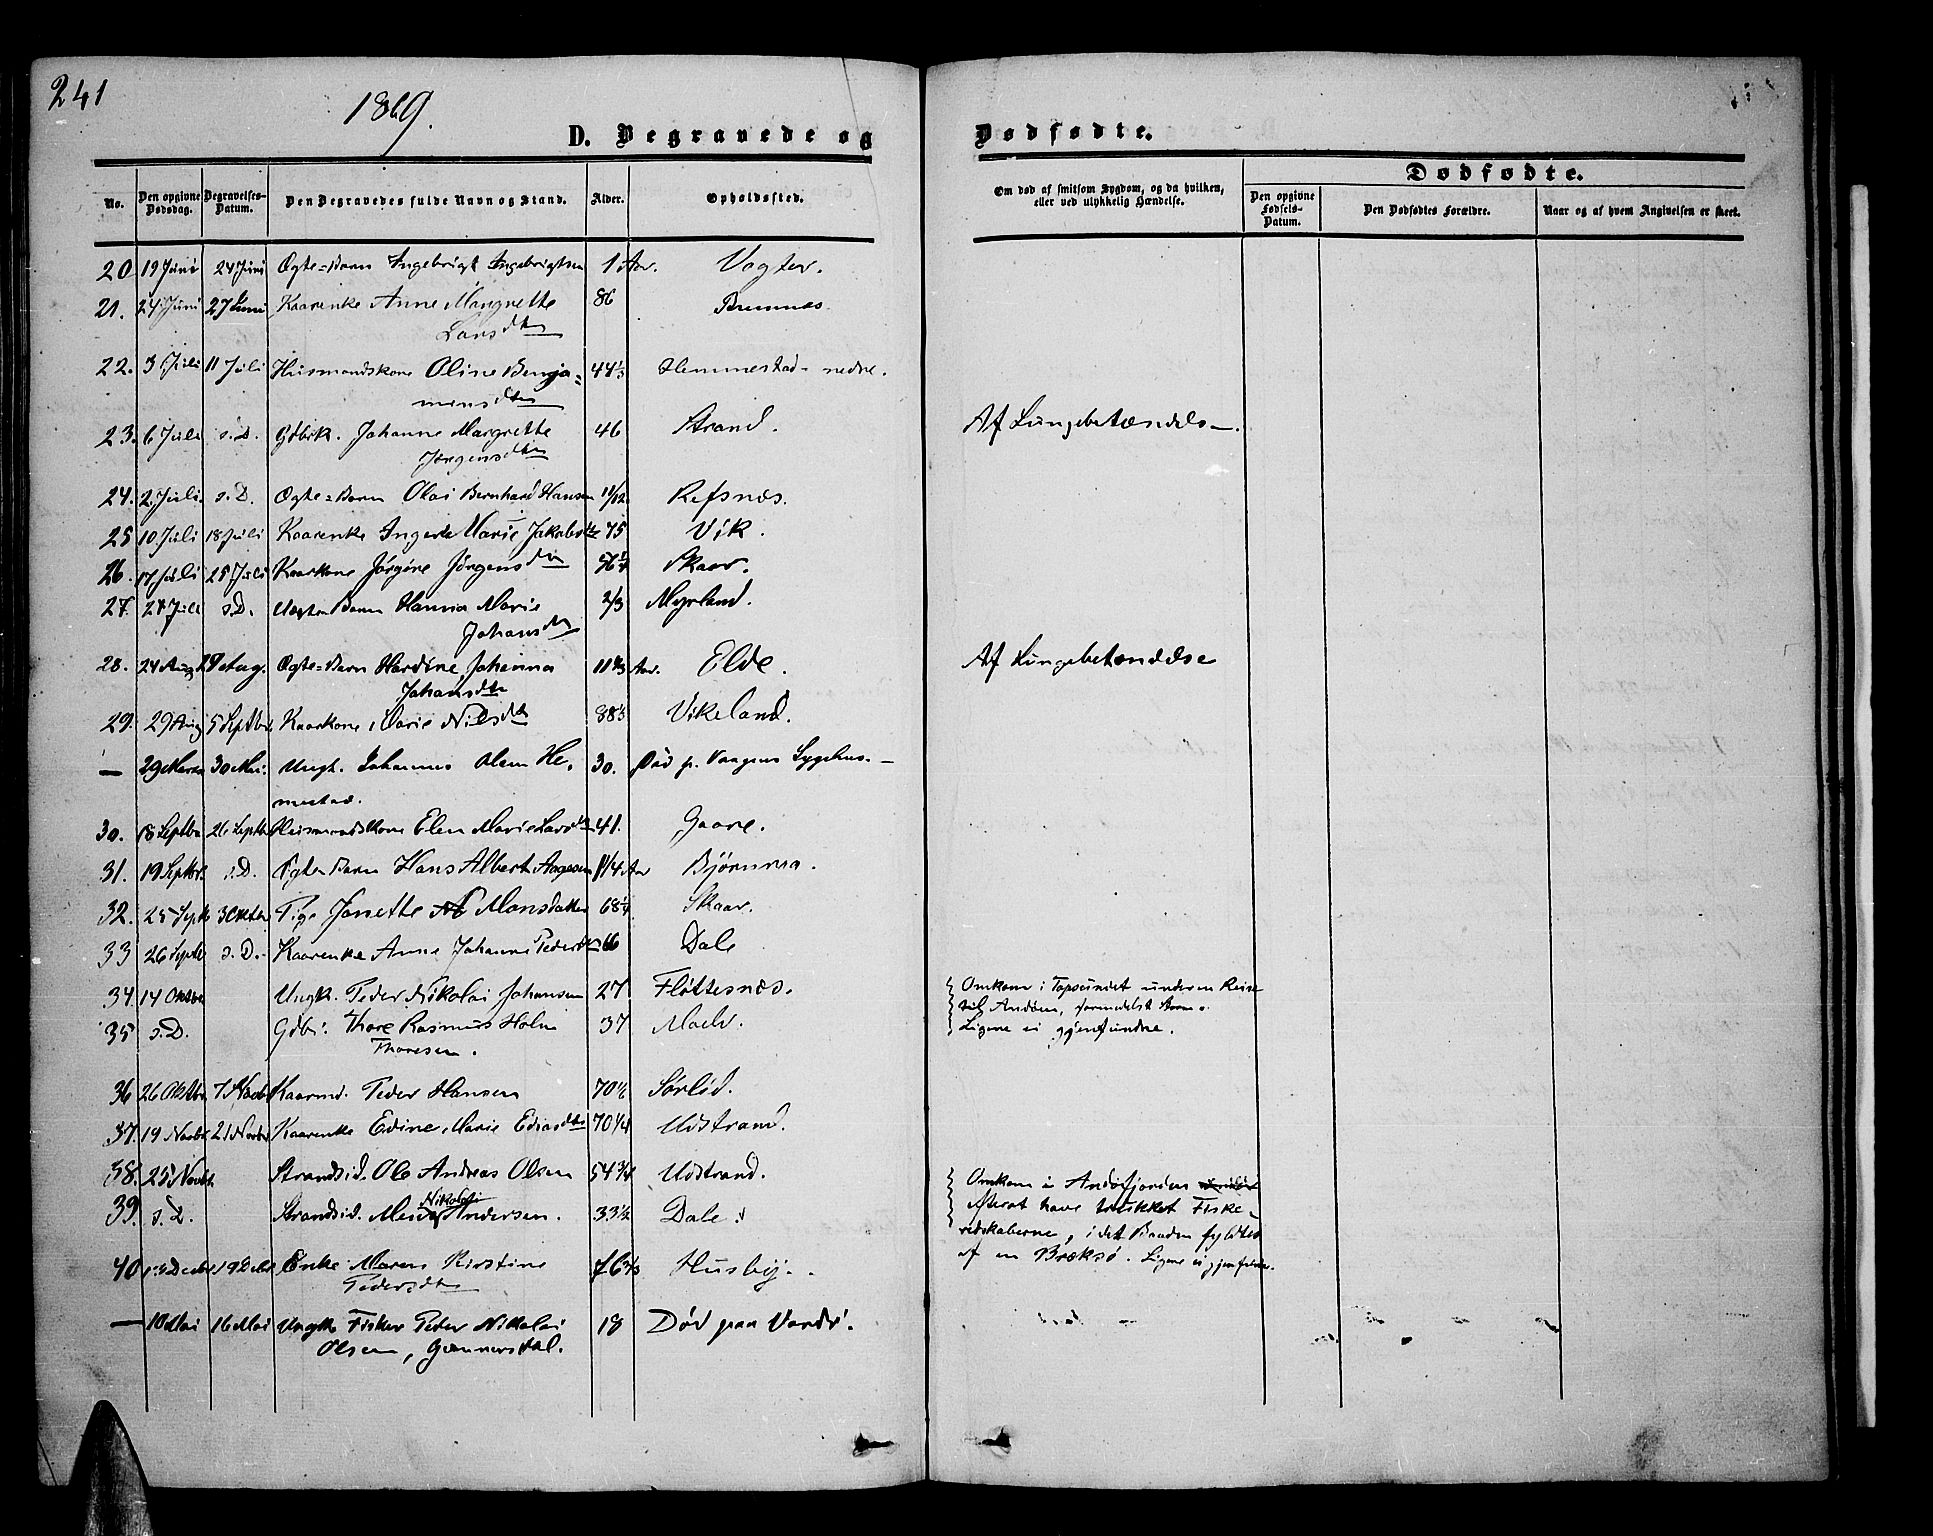 241
1869.
D. Begravede og
Dødfødte.
No.
Den opgivne Dødsdag.
Begravelses-Datum.
Den Begravedes fulde Navn og Stand.
Alder.
Opholdssted.
Om død af smitsom Sygdom, og da hvilken,
eller ved ulykkelig Hændelse.
Dødfødte.
Den opgivne Fødsels-Datum.
Den Dødfødtes Forældre.
Naar og af hvem Angivelsen er skeet.
20 19 Juni 24 Juni Ægte=Barn Ingebrigt Ingebrigtsen 1 Aar. Vogter.
21. 24 Juni 27 Juni Kaarenke Anne Margrette 86
Larsdtr
22. 3 Juli 11 Juli Husmandskone Oline Benja= 44 1/3 Hemmestad-nedre.
minsdtr
23. 6 Juli s.D. Gdbrk. Johanne Margrette 46 Strand. Af Lungebetændelse.
Jørgensdtr
24. 2 Juli. s.D. Ægte=Barn Olai Bernhard Hansen 11/12 Refsnæs.
25 10 Juli 18 Juli Kaarenke Ingerte Marie Jakobsdtr 75 Vik.
26. 17 Juli 25 Juli Kaarkone Jørgine Jørgensdtr Skaar.
27. 27 Juli s.D. Barn Hanna Marie 2/3 Myrland.
Johansdtr
28. 24 Aug 29 Aug. Ægte=Barn Hardine Johanna 11 Aar. Elde. Af Lungebetændelse
Johansdtr
29. 29 Aug 5 Septbr. Kaarkone Marie Nilsdtr 88 1/3 Vikeland.
— 29 30 Mai. Ungk. Johannes Olsen He- 30. Død p. Vaagens Sygehus. —
mestad.
30. 18 Septbr 26 Septbr Husmandskone Elen Marie Larsdtr 41. Gaare.
31. 19 Septbr. s.D. Ægte Barn Hans Albert Aagesen 1/4 Aar Bjørnraa.
32. 25 Septb 3 Oktbr Pige Janette Monsdatter 68 1/4 Skaar.
33 26 Septbr s.D. Kaarenke Anne Johanna Pedersdtr 66 Dale
34. 14 Oktbr Ungk. Peder Nikolai Johansen 27 Fløttesnæs. Omkom i Topsundet under en Reise
til Andøen, formedelst Storm.
35 s.D. Gdbr. Thore Rasmus Holm 37 Maelv. Ligene ei gjenfundne.
Thoresen.
36 26 Oktbr. 7 Novbr Kaarmd. Peder Hansen 70 1/2 Sørlid.
37. 19 Novbr. 21 Novbr Kaarenke Edine Marie Ediasdtr 70 1/4 Udstrand.
38. 25 Novbr. Strandsid. Ole Andreas Olsen 54 3/4 Udstrand. Omkom i Andøfjorden
Nikolai
39. s.D. Strandsid. Meier Andersen. 33 1/2 Dale. efterat have trukket Fiske-
redskaberne, idet Baaden fyldtes
af en Bræksø. Ligene ei gjenfundne.
40 Decbr 19 Decbr Enke Maren Kirstine 76 2/3 Husby.
Pedersdtr
— 10 Mai 16 Mai Ungk. Fisker Peder Nikolai 18 Død paa Vardø.
Olsen, Gunnersdal.